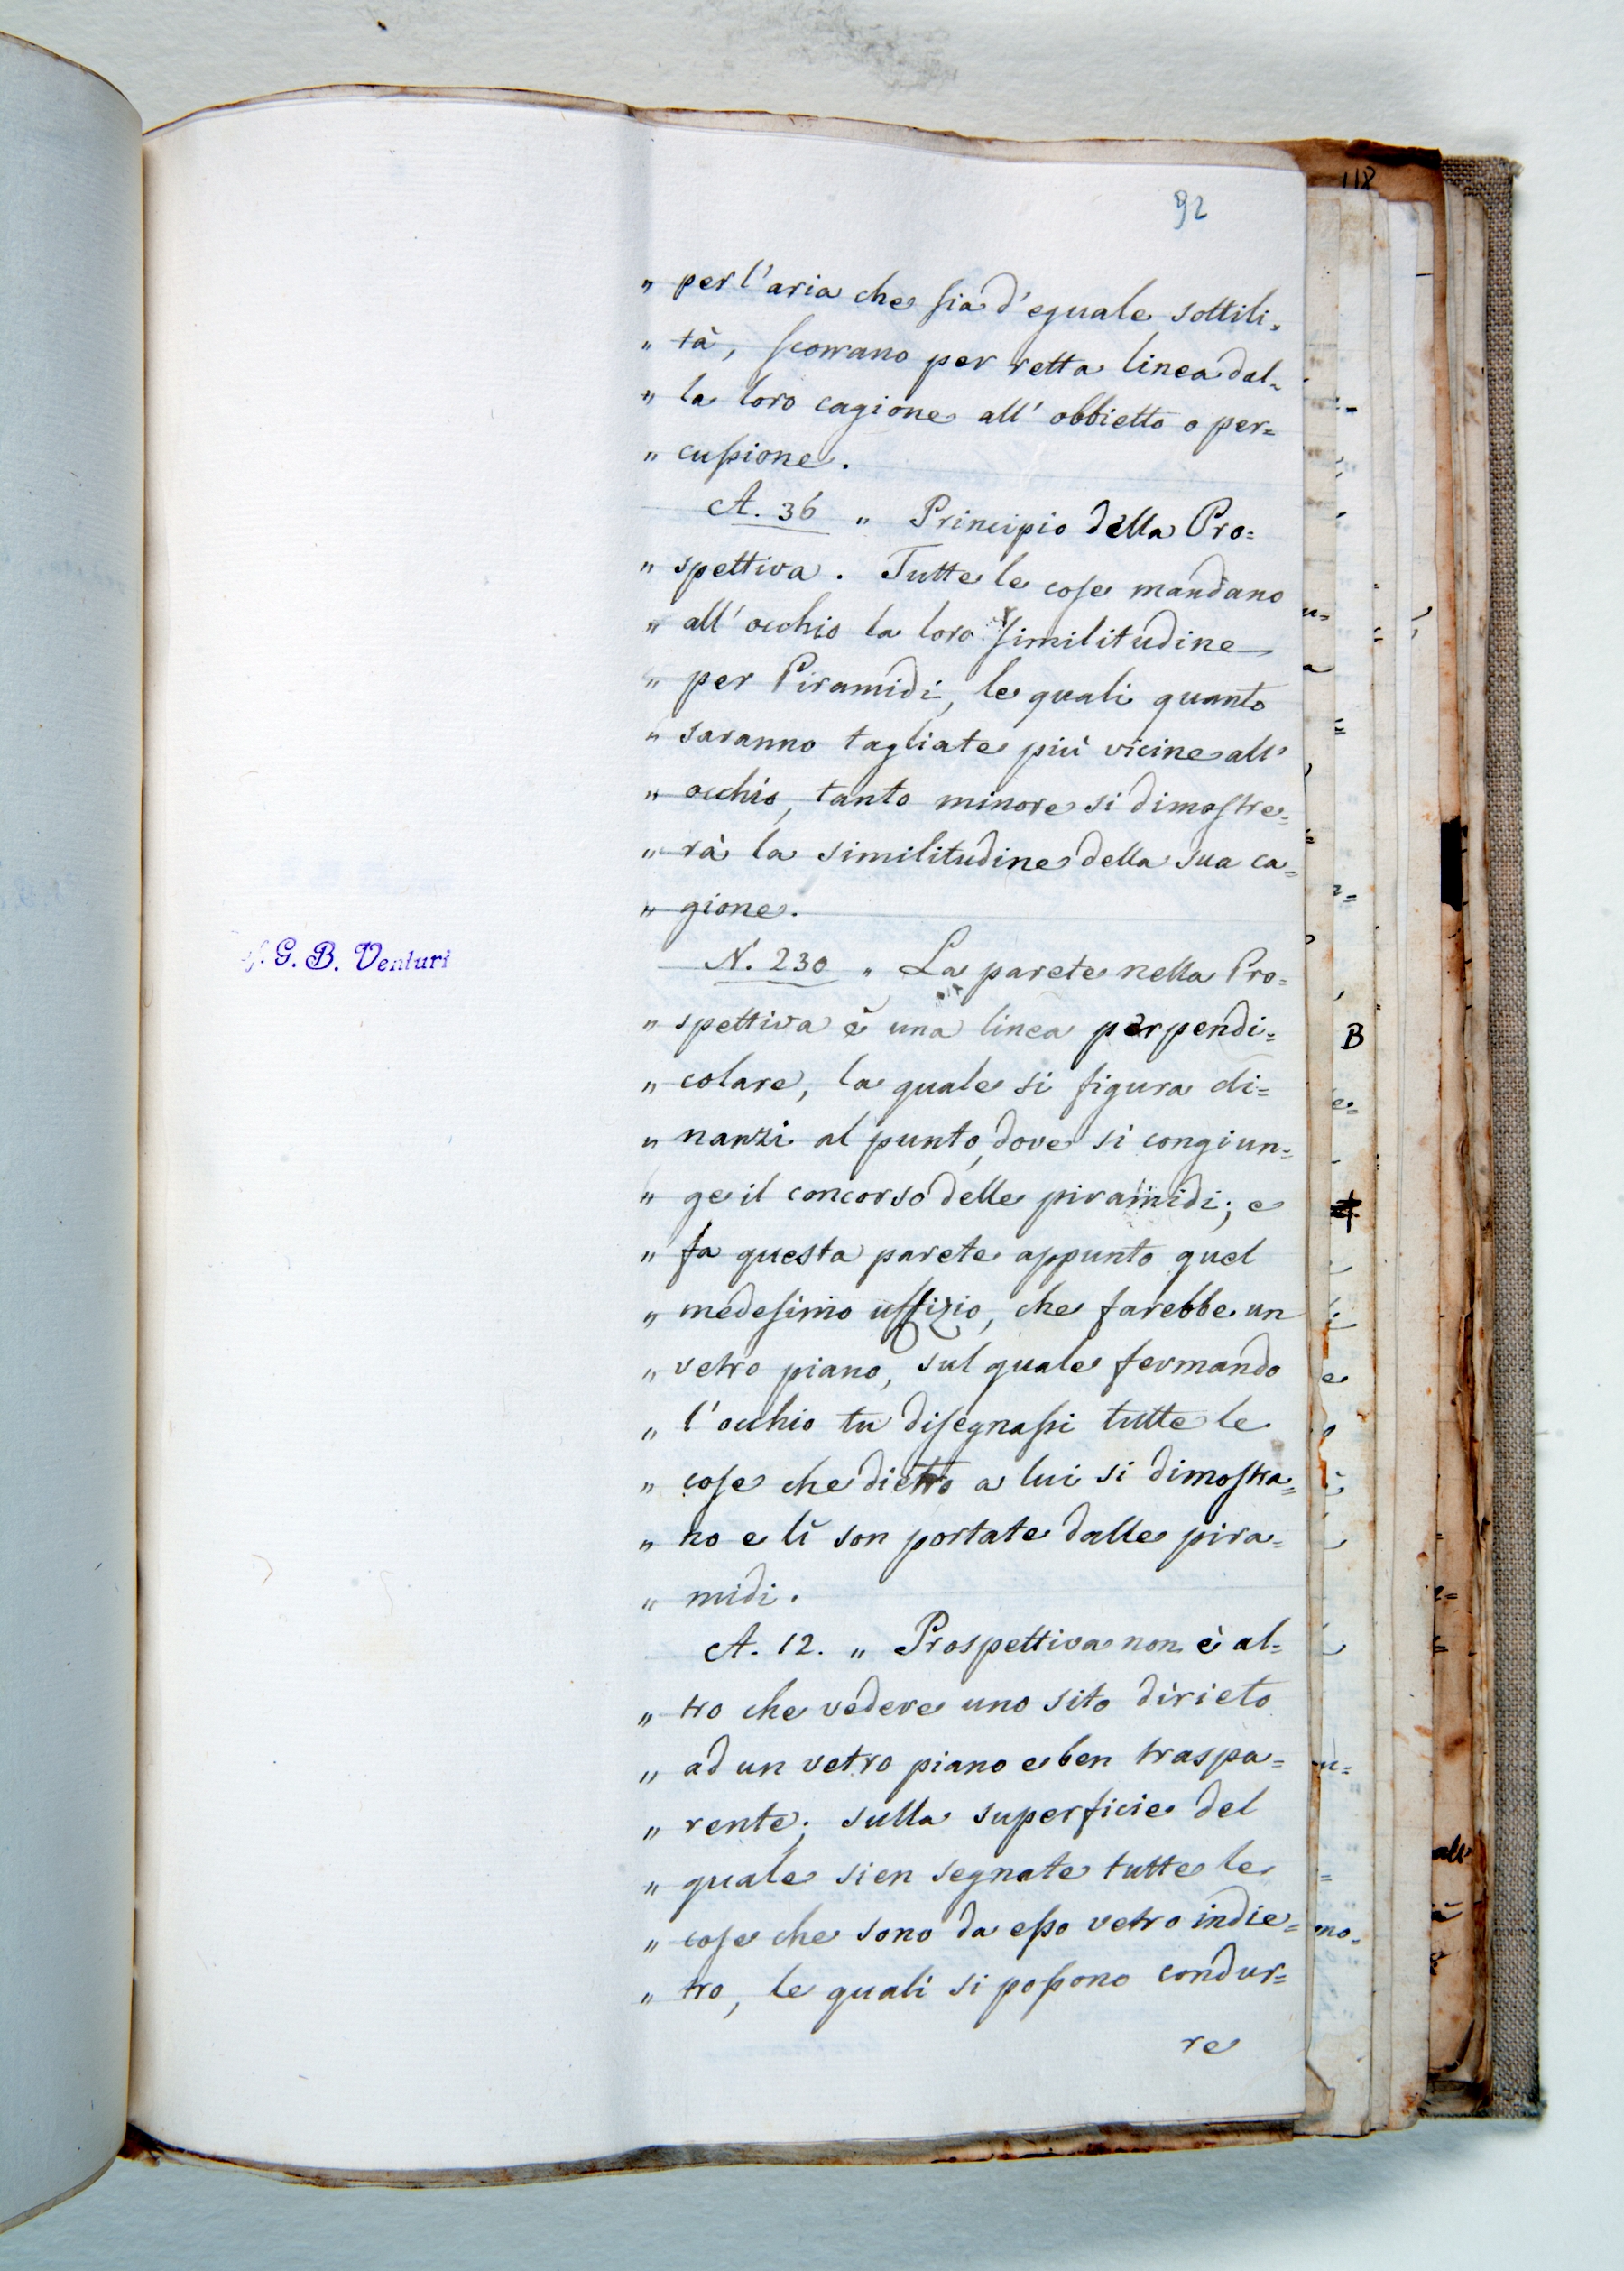 118
92
" per l'aria che sia d'eguale sottili=
" tà, scorrano per retta linea dal=
" la loro cagione all' obbietto o per=
" cussione.
A. 36 " Principio della Pro=
" spettiva. Tutte le cose mandano
" all' occhio la loro similitudine
" per Piramidi, le quali quanto
" saranno tagliate più vicine all'
" occhio, tanto minore si dimostre=
" rà la similitudine della sua ca=
" gione.
f. G. B. Venturi
N. 230 " La parete nella Pro=
" spettiva è una linea perpendi=
" colare, la quale si figura di=
" nanzi al punto, dove si congiun=
" ge il concorso delle piramidi; e
" fa questa parete appunto quel
" medesimo uffizio, che farebbe un
" vetro piano, sul quale fermando
" l'occhio tu disegnassi tutte le
" cose che dietro a lui si dimostra=
" no e lì son portate dalle pira=
" midi.
A. 12. " Prospettiva non è al=
" tro che vedere uno sito dirieto
" ad un vetro piano e ben traspa=
" rente; sulla superficie del
" quale sien segnate tutte le
" cose che sono da esso vetro indie=
" tro, le quali si possono condur=
re